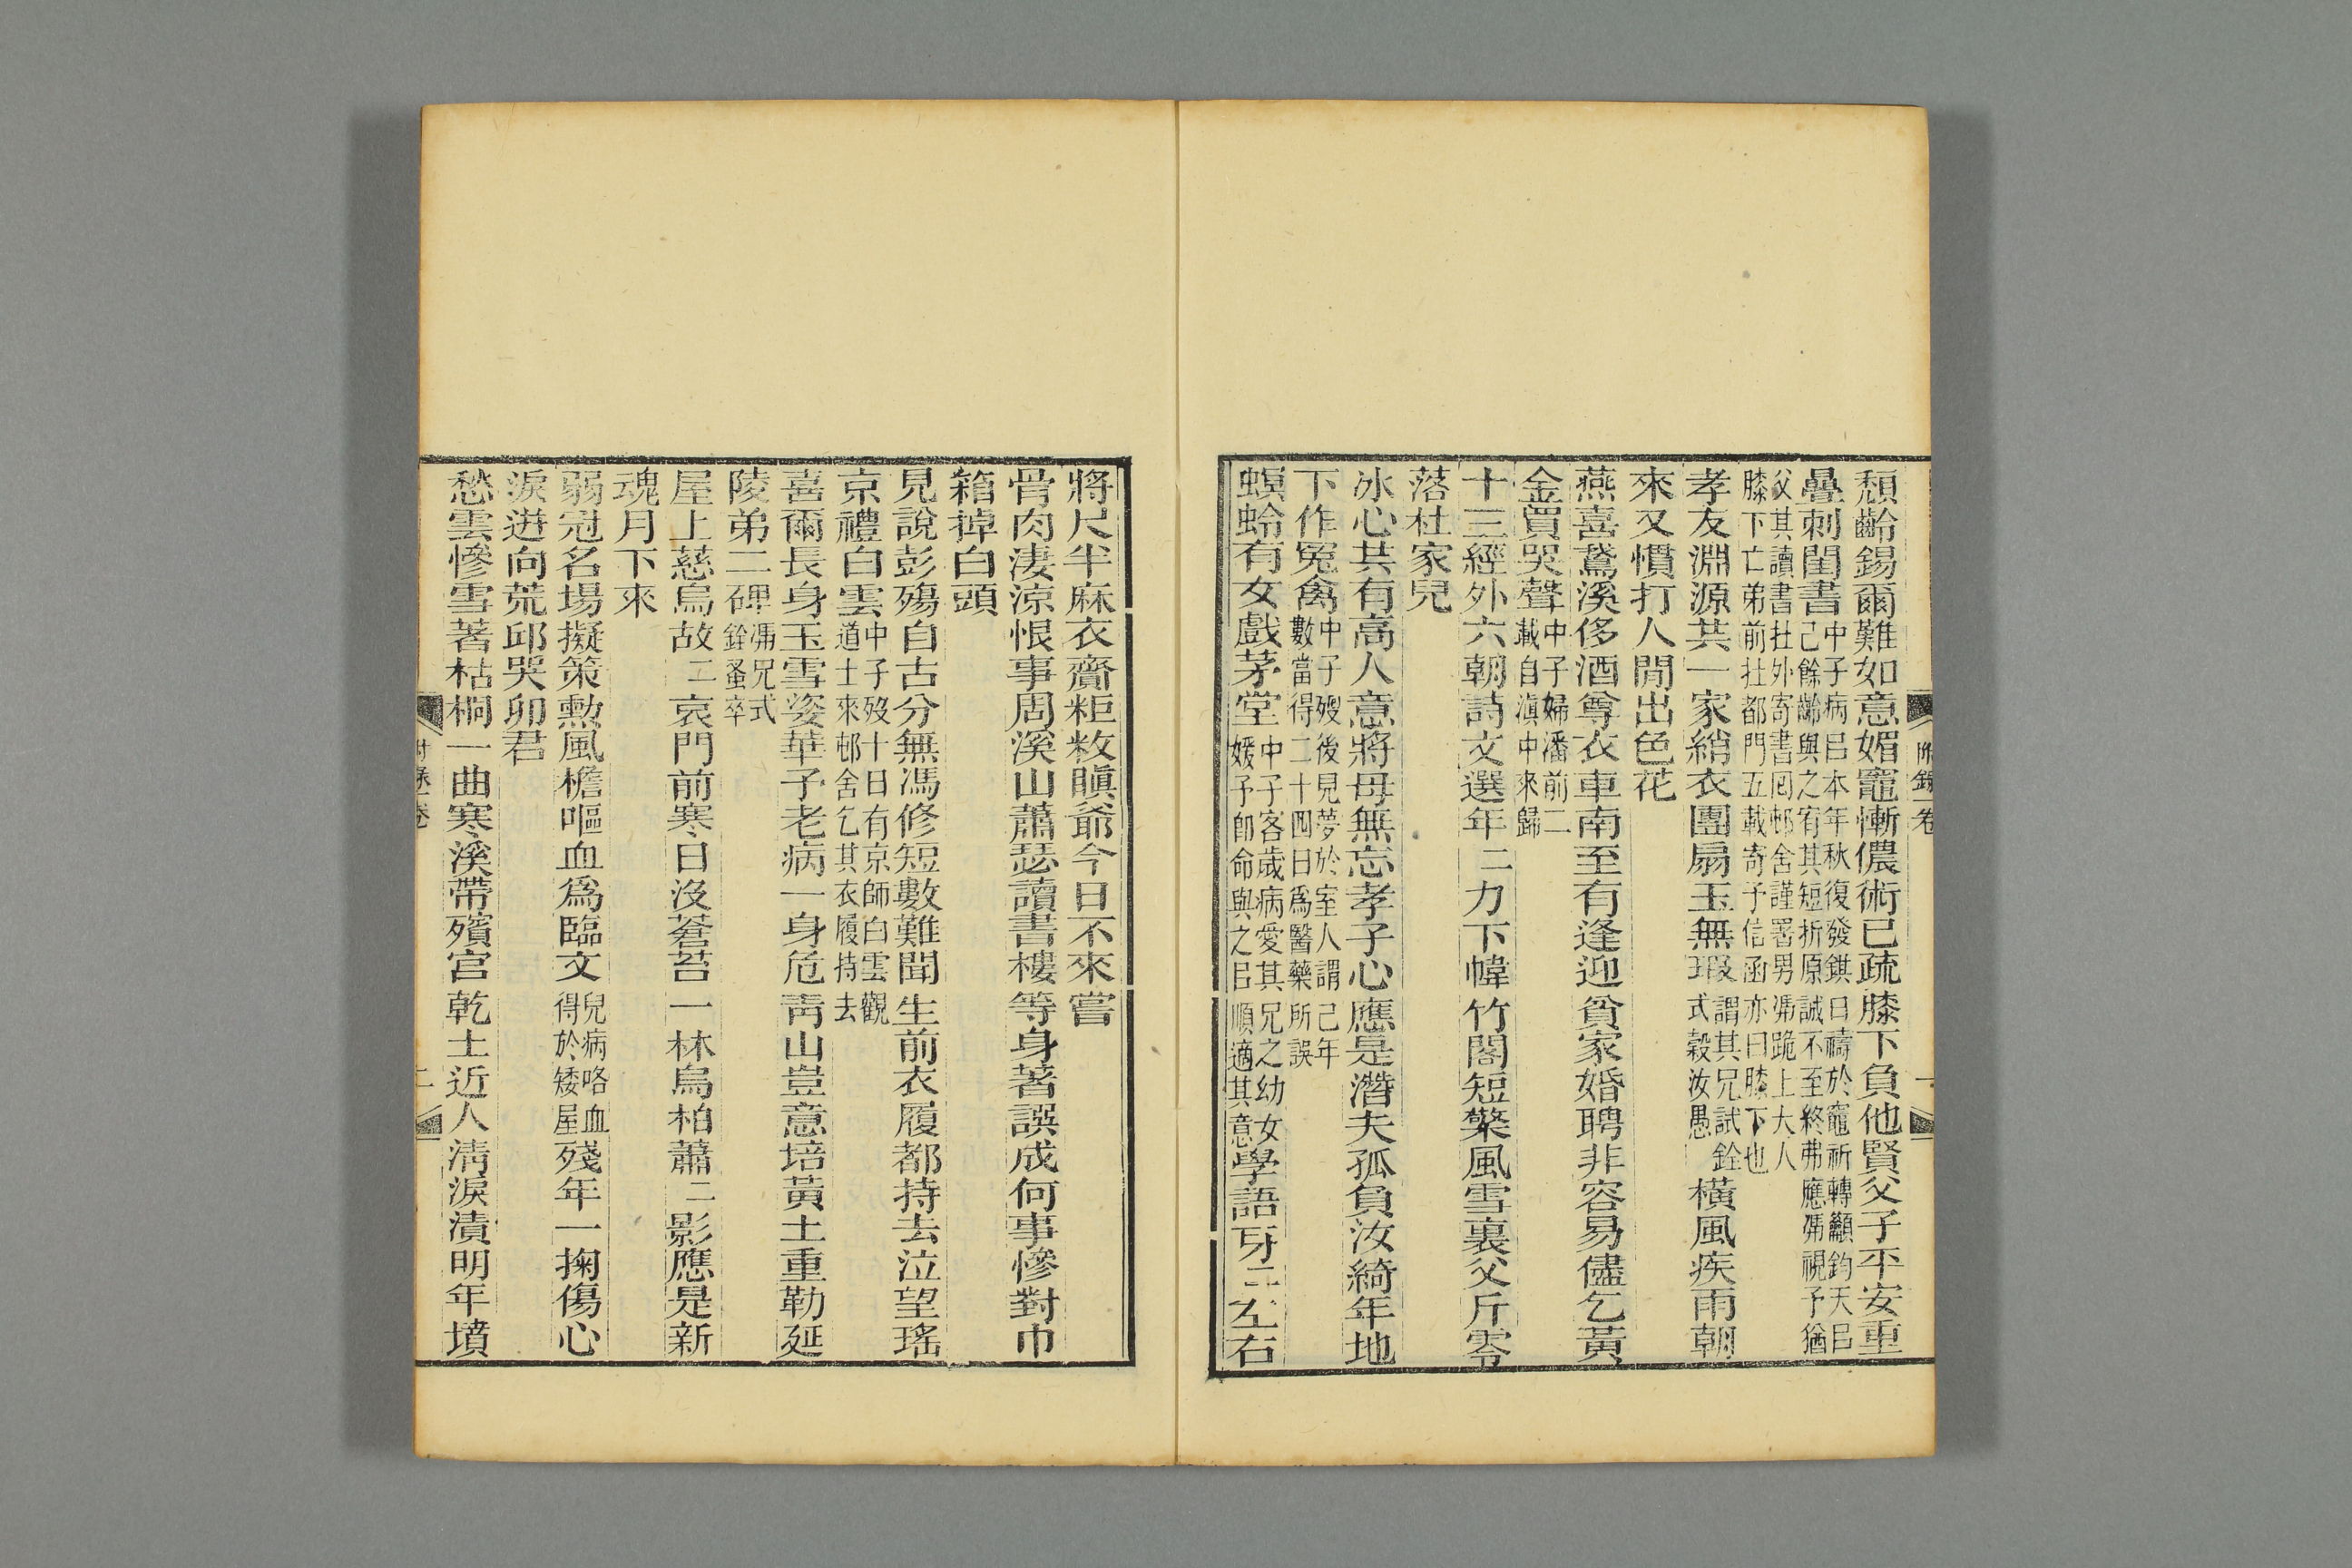 頹齡錫爾難如意媚竈慚儂術已疏膝下負他賢父子平安重
疊刺闈書中子病㠯本年秋復發錤曰禱於竈祈轉籲鈞天㠯
己餘齡與之宥其短折原誠不至終弗應㵗視予猶
父其讀書㘦外寄書囘邨舍謹署男㵗跪上大人
膝下亡弟前㘦都門五載寄予信函亦曰膝下也
孝友淵源共一家綃衣團扇玉無瑕謂其兄試銓
式穀汝愚橫風疾雨朝
來又慣打人閒出色花
燕喜鵞溪侈酒尊衣車南至有逢迎貧家婚聘非容易儘乞黃
金買哭聲中子婦潘前二
載自滇中來歸
十三經外六朝詩文選年二力下幃竹閣短檠風雪裏父斤零
落杜家兒
冰心共有高人意將母無忘孝子心應是潛夫孤負汝綺年地
下作冤禽中子歿後見夢於室人謂己年
數當得二十四日爲醫藥所誤
螟蛉有女戲茅堂中子客歲病愛其兄之幼女
媛予卽命與之㠯順適其意學語牙二左右
將尺半麻衣齋粔籹瞋爺今日不來嘗
骨肉淒涼恨事周溪山蕭瑟讀書樓等身著誤成何事慘對巾
箱掉白頭
見說彭殤自古分無馮修短數難聞生前衣履都持去泣望瑤
京禮白雲中子歿十日有京師白雲觀
道士來邨舍乞其衣履持去
喜爾長身玉雪姿華子老病一身危靑山豈意培黃土重勒延
陵弟二碑㵗兄式
銓蚤卒
屋上慈烏故二哀門前寒日沒蒼苔一林烏柏蕭二影應是新
魂月下來
弱冠名場擬策勳風檐嘔血爲臨文兒病咯血
得於矮屋殘年一掬傷心
淚迸向荒邱哭卯君
愁雲慘雪著枯桐一曲寒溪帶殯宮乾土近人淸淚漬明年墳